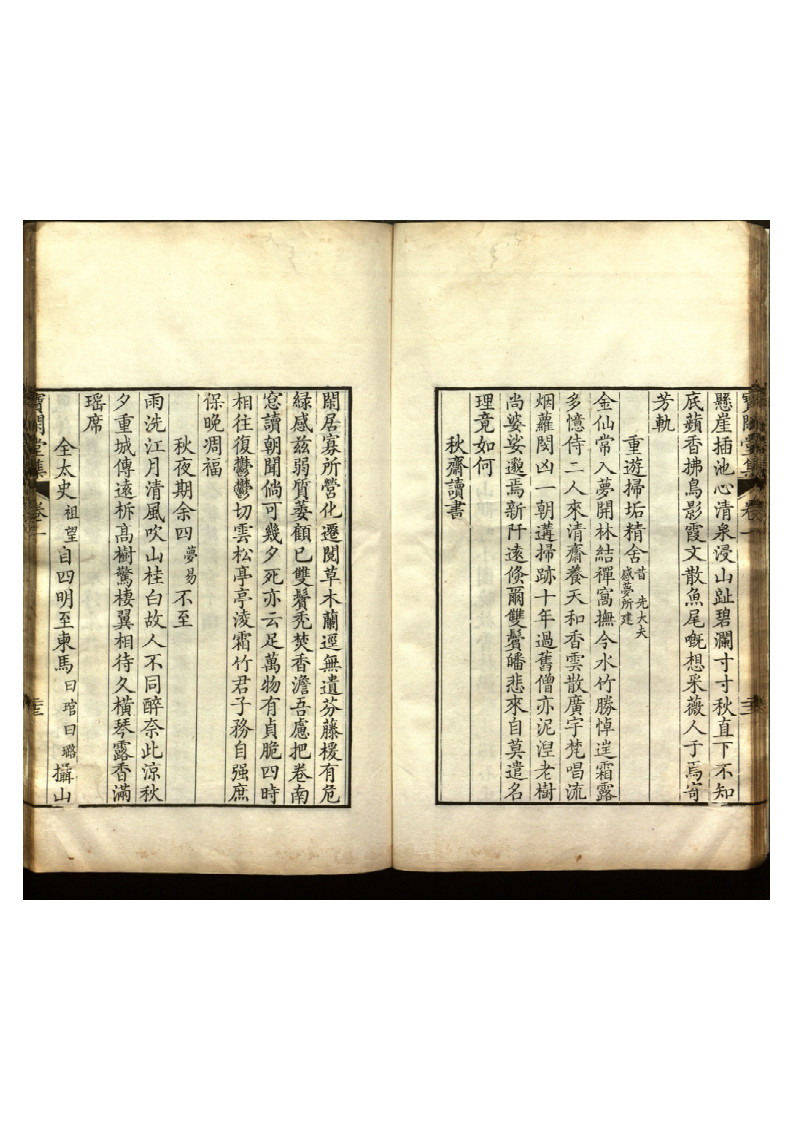 寶閑堂集
卷一
三
懸崖插池心清泉浸山趾碧瀾寸寸秋直下不知
底蘋香拂鳥影霞文散魚尾嘅想采薇人于焉寄
芳軌
重遊掃垢精舍昔先大夫感夢所建
金仙常入夢開林結禪窩撫今水竹勝悼逹霜露
多憶侍二人來清齋養天和香雲散廣宇梵唱流
烟蘿閔凶一朝遘掃跡十年過舊僧亦泥湼老樹
尚婆娑邈焉新阡遠倏爾雙鬢皤悲來自莫遣名
理竟如何
秋齋讀書
閒居寡所營化遷閱草木蘭逕無遺芬藤櫻有危
綠感茲弱質萎顧已雙鬢禿焚香澹吾慮把卷南
窓讀朝聞倘可幾夕死亦云足萬物有貞脆四時
相往復鬱鬱切雲松亭亭淩霜竹君子務自强庶
保晚凋福
秋夜期余四夢易不至
雨洗江月清風吹山桂白故人不同醉奈此涼秋
夕重城傳遠柝髙樹驚棲翼相待久橫琴露香滿
瑤席
全太史祖望自四明至東馬曰琯曰璐攝山
寶閑堂集
卷一
三